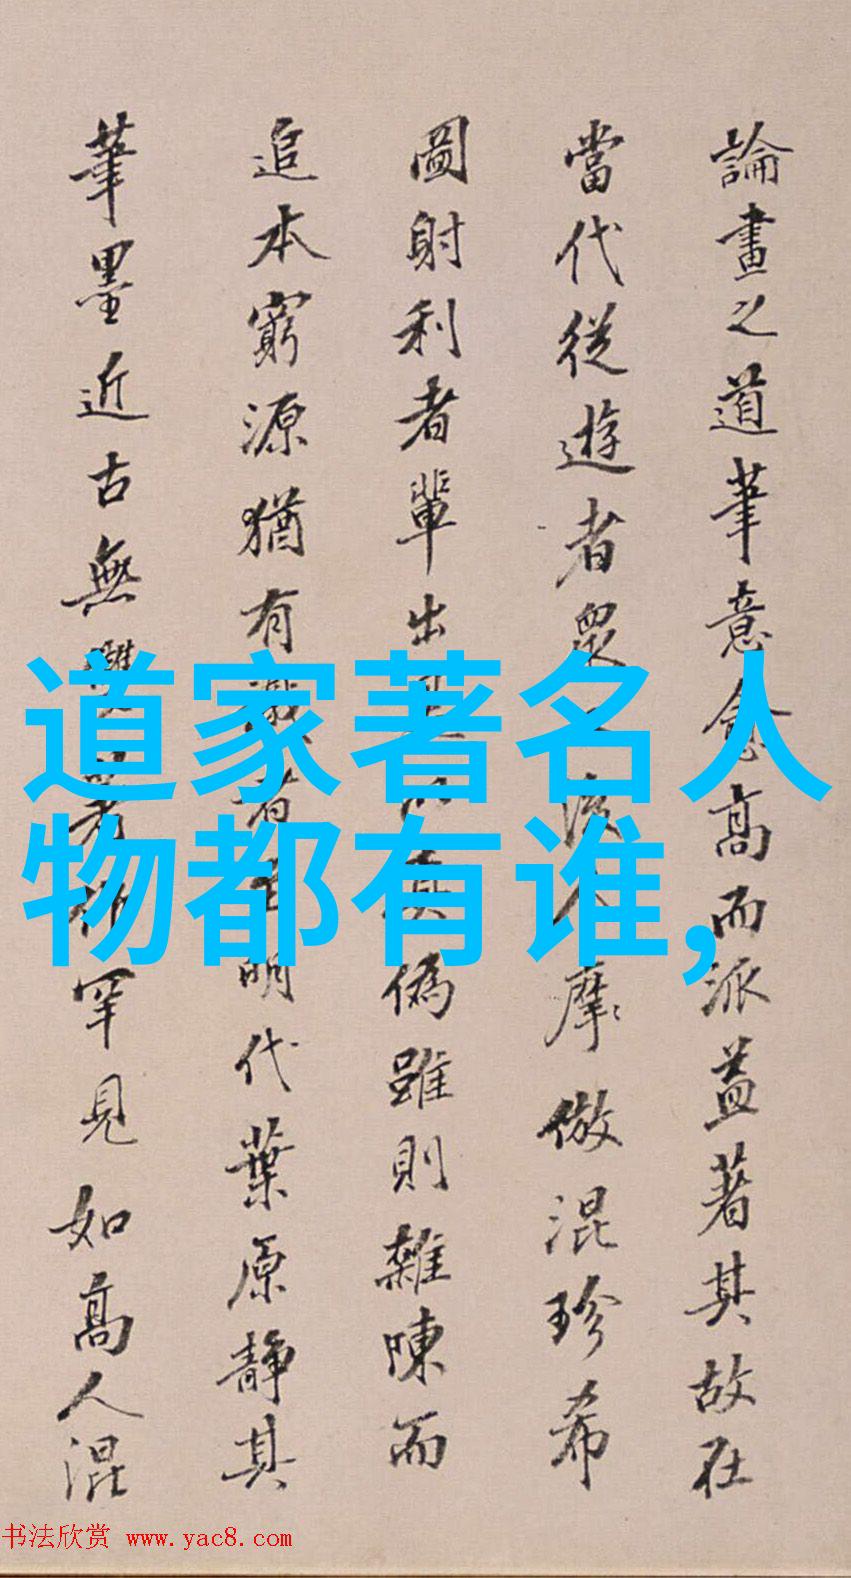 論畫之道筆意愈高而派益著其故在
當代從遊者衆後人摩倣混珍希
圖射利者輩出其偽雖則雜陳而
追本窮源猶有識者明代葉原靜其
筆墨近古無著作罕見如高人混
道家著名人
物都有谁,
书法欣赏 www.yac8.com